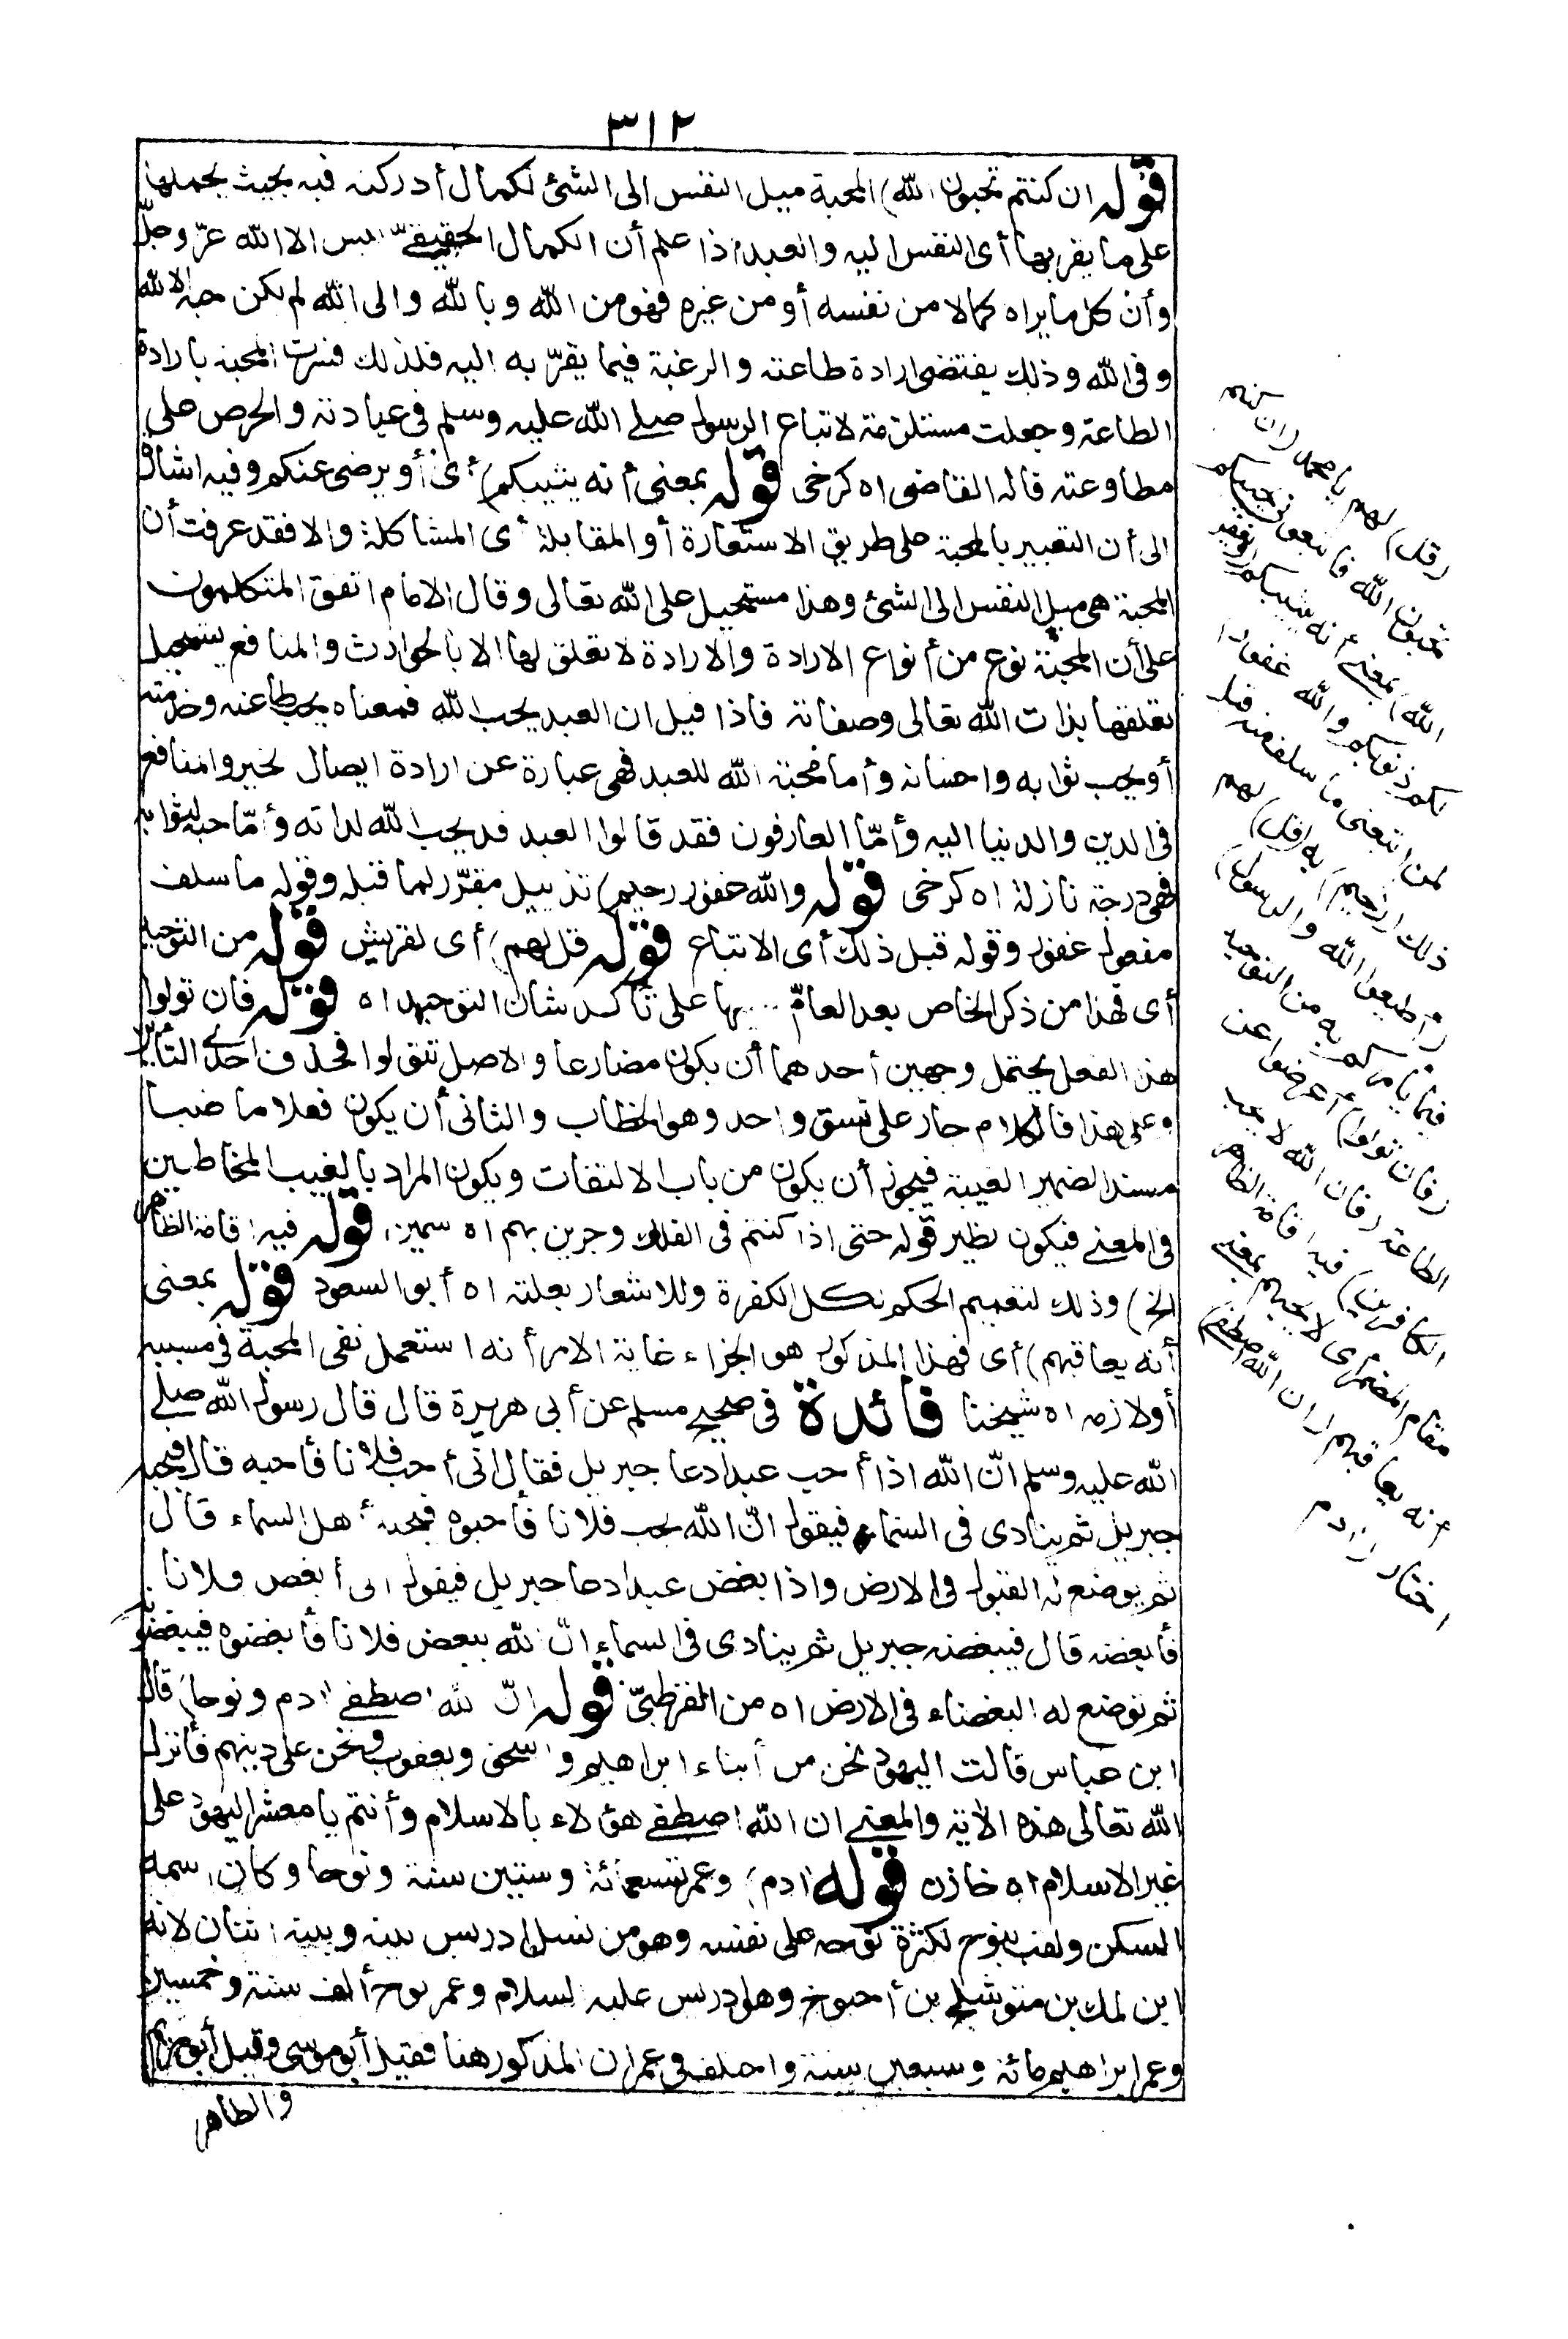 ٣١٢
قوله ان كنتم تحبون الله) المحبة ميل النفس الى الشئ لكمال أدركته فيه بحيث يحملها
على ما يقربها أى النفس اليه والعبد اذا علم أن الكمال الحقيقىّ ليس الا الله عزّ وجلّ
وأن كل ما يراه كمالا من نفسه أو من غيره فهو من الله وبالله والى الله لم يكن حبه الا لله
وفى الله وذلك يقتضى ارادة طاعته والرغبة فيما يقرّبه اليه فلذلك فسرت المحبة بارادة
الطاعة وجعلت مستلزمة لاتباع الرسول صلى الله عليه وسلم فى عبادته والحرص على
مطاوعته قاله القاضى اه كرخى قوله بمعنى أنه يثيبكم) أى أو يرضى عنكم وفيه اشارة
الى أن التعبير بالمحبة على طريق الاستعارة أو المقابلة أى المشاكلة والا فقد عرفت أن
المحبة هى ميل النفس الى الشئ وهذا مستحيل على الله تعالى وقال الامام اتفق المتكلمون
على أن المحبة نوع من أنواع الارادة والارادة لا تعلق لها الا بالحوادث والمنافع يستحيل
تعلقها بذات الله تعالى وصفاته فاذا قيل ان العبد يحب الله فمعناه يحب طاعته وخدمته
أو يحب ثوابه واحسانه وأما محبة الله للعبد فهى عبارة عن ارادة ايصال لخير والمنافع
فى الدين والدنيا اليه وأمّا العارفون فقد قالوا العبد قد يحب الله لذاته وأمّا حبه لثوابه
فهى درجة نازلة اه كرخى قوله والله غفور رحيم) تذييل مقرّر لما قبله وقوله ما سلف
مفعول غفور وقوله قبل ذلك أى الاتباع قوله قل لهم) أى لقريش قوله من التوحيد
أى فهذا من ذكر الخاص بعد العامّ على تأكد شان التوحيد اه قوله فان تولوا
هذا الفعل يحتمل وجهين أحدهما أن يكون مضارعا والاصل تتولوا فحذف احدى التاءين
وعلى هذا فالكلام جار على نسق واحد وهو الخطاب والثانى أن يكون فعلا ماضيا
مسندا لضمير الغيبة فيجوز أن يكون من باب الالتفات ويكون المراد بالغيب المخاطبين
فى المعنى فيكون نظير قوله حتى اذا كنتم فى الفلك وجرين بهم اه سمين قوله فيه اقامة الظاهر
الخ) وذلك لتعميم الحكم لكل الكفرة وللاشعار بعلته اه أبو السعود قوله بمعنى
أنه يعاقبهم) أى فهذا المذكور هو الجزاء غاية الامر أنه استعمل نفى المحبة فى مسببه
أو لازمه اه شيخنا فائدة فى صحيح مسلم عن أبى هريرة قال قال رسول الله صلى
الله عليه وسلم انّ الله اذا أحب عبدا دعا جبريل فقال انى أحب فلانا فأحبه قال فيحبه
جبريل ثم ينادى فى السماء فيقول انّ الله يحب فلانا فأحبوه فيحبه أهل السماء قال
ثم يوضع له القبول فى الارض واذا بغض عبدا دعا جبريل فيقول انى أبغض فلانا
فأبغضه قال فيبغضه جبريل ثم ينادى فى السماء انّ الله يبغض فلانا فأبغضوه فيبغضونه
ثم توضع له البغضاء فى الارض اه من القرطبىّ قوله انّ الله اصطفى ادم ونوحا) قال
ابن عباس قالت اليهود نحن من أبناء ابراهيم واسحق ويعقوب ونحن على دينهم فأنزل
الله تعالى هذه الاية والمعنى ان الله اصطفى هؤلاء بالاسلام وأنتم يا معشر اليهود على
غير الاسلام اه خازن قوله ادم) وعمر تسعمائة وستين سنة ونوحا وكان اسمه
السكن ولقب بنوح لكثرة نوحه على نفسه وهو من نسل ادريس بينه وبينه اثنان لانه
ابن لمك بن متوشلخ بن أخنوخ وهو ادريس عليه السلام وعمر نوح ألف سنة وخمسين
وعمر ابراهيم مائة وسبعين سنة واختلف فى عمران المذكور هنا فقيل أبو موسى وقيل أبو مريم
والظاهر
(قل) لهم يا محمد (ان كنتم
تحبون الله فاتبعونى يحببكم
الله) بمعنى أنه يثيبكم (ويغفر
لكم ذنوبكم والله غفور)
لمن اتبعنى ما سلف منه قبل
ذلك (رحيم) به (قل) لهم
(أطيعوا الله والرسول)
فيما يأمركم به من التوحيد
(فان تولوا) أعرضوا عن
الطاعة (فان الله لا يحب
الكافرين) فيه اقامة الظاهر
مقام المضمر أى لا يحبهم بمعنى
أنه يعاقبهم (ان الله اصطفى)
اختار (ادم